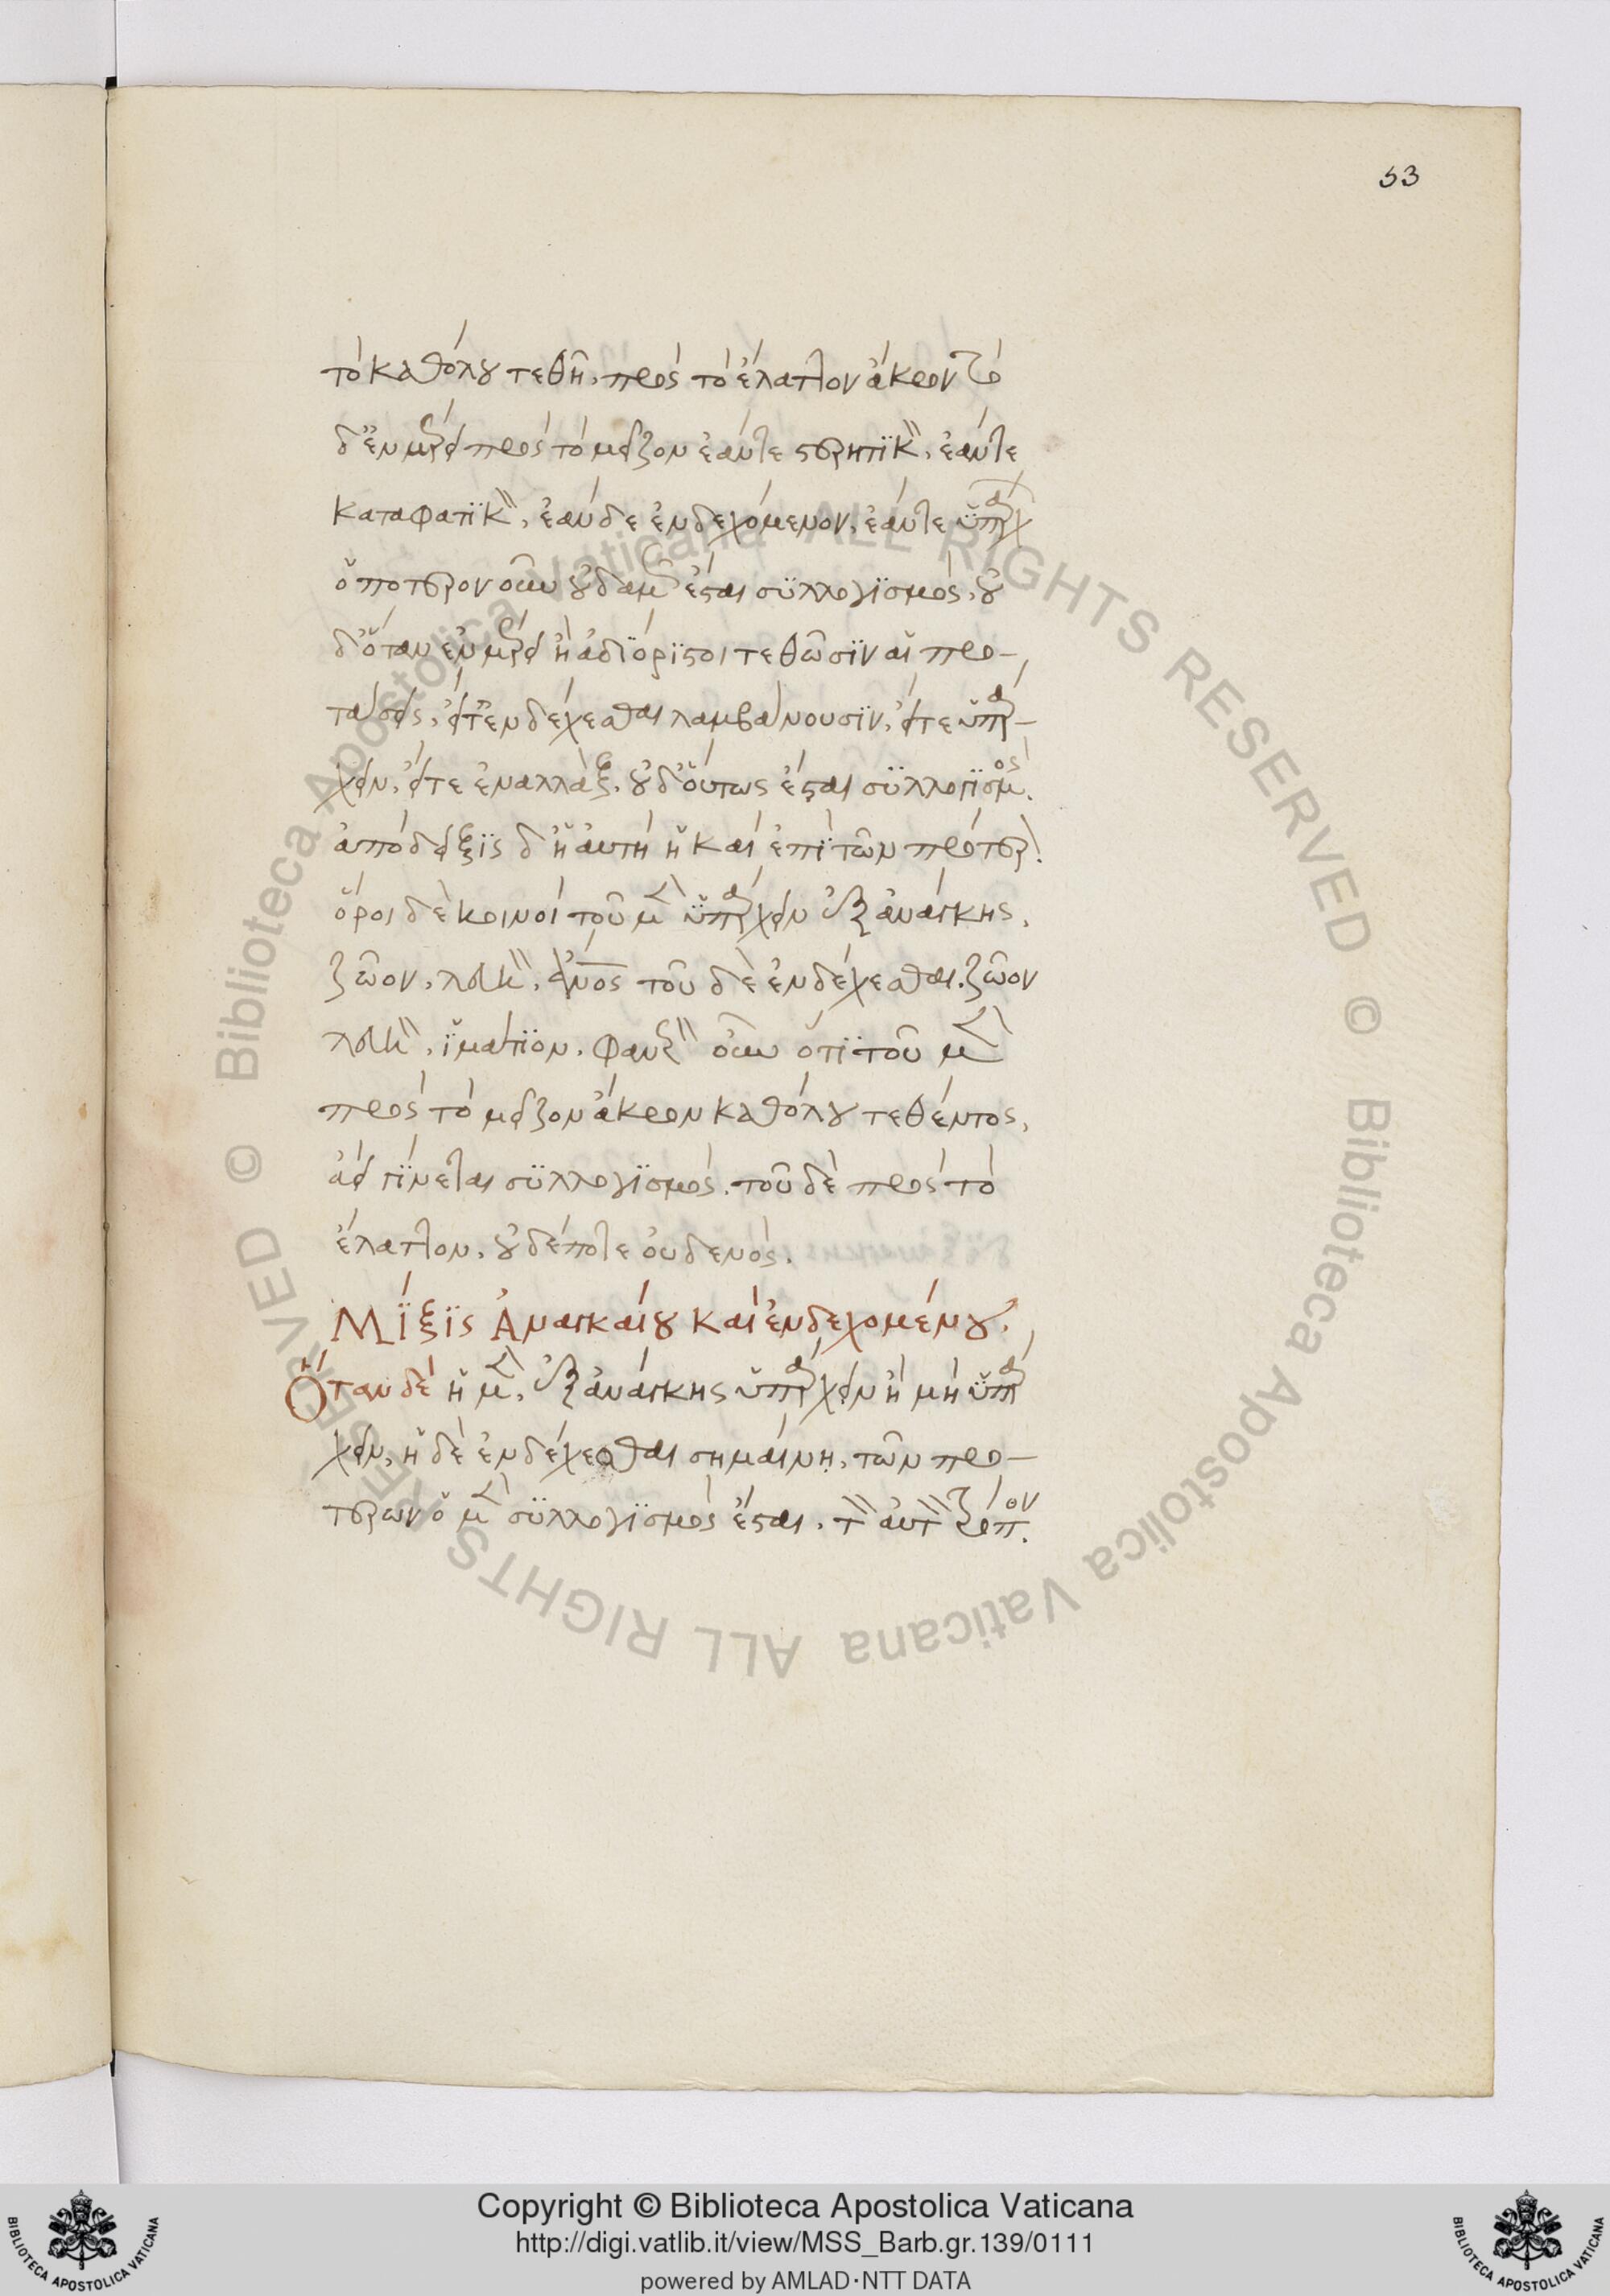 53
τὸ καθόλου τεθῇ, πρὸς τὸ ἔλαττον ἄκρον τὸ
δ' ἐν μέρει πρὸς τὸ μεῖζον ἐάντε στερητικὸν, ἐάντε
καταφατικὸν, ἐὰν δὲ ἐνδεχόμενον, ἐάντε ὑπάρχ
ὁποτερονοῦν οὐδαμῶς ἔσται συλλογισμός, οὐ
δ' ὅταν ἐν μέρει ἢ ἀδιόριστοι τεθῶσιν αἱ προ-
τάσεις, εἴτ' ἐνδέχεσθαι λαμβάνουσιν, εἴτε ὑπάρ-
χειν, εἴτε ἐναλλὰξ, οὐδ' οὕτως ἔσται συλλογισμός.
ἀπόδειξις δ' ἡ αὐτὴ ἣ καὶ ἐπὶ τῶν πρότερ.
ὅροι δὲ κοινοὶ τοῦ μὲν ὑπάρχειν ἐξ ἀνάγκης,
ζῶον, λευκὸν, ἄνος τοῦ δὲ ἐνδέχεσθαι. ζῶον
λευκὸν, ἱμάτιον. φανερὸν οὖν ὅτι τοῦ μὲν
πρὸς τὸ μεῖζον ἄκρον καθόλου τεθέντος,
ἀεὶ γίνεται συλλογισμός. τοῦ δὲ πρὸς τὸ
ἔλαττον, οὐδέποτε οὐδενός.
Μίξις Ἀναγκαίου καὶ ἐνδεχομένου.
Ὅταν δὲ ἡ μὲν, ἐξ ἀνάγκης ὑπάρχειν ἢ μὴ ὑπάρ
χειν, ἡ δὲ ἐνδέχεσθαι σημαίνῃ, τῶν προ-
τερων ὁ μὲν συλλογισμὸς ἔσται, τὸν αὐτὸν τρόπον.
Copyright © Biblioteca Apostolica Vaticana
http://digi.vatlib.it/view/MSS_Barb.gr.139/0111
powered by AMLAD·NTT DATA
BIBLIOTECA APOSTOLICA VATICANA
BIBLIOTECA APOSTOLICA VATICANA
© Biblioteca Apostolica Vaticana ALL RIGHTS RESERVED © Biblioteca Apostolica Vaticana ALL RIGHTS RESERVED